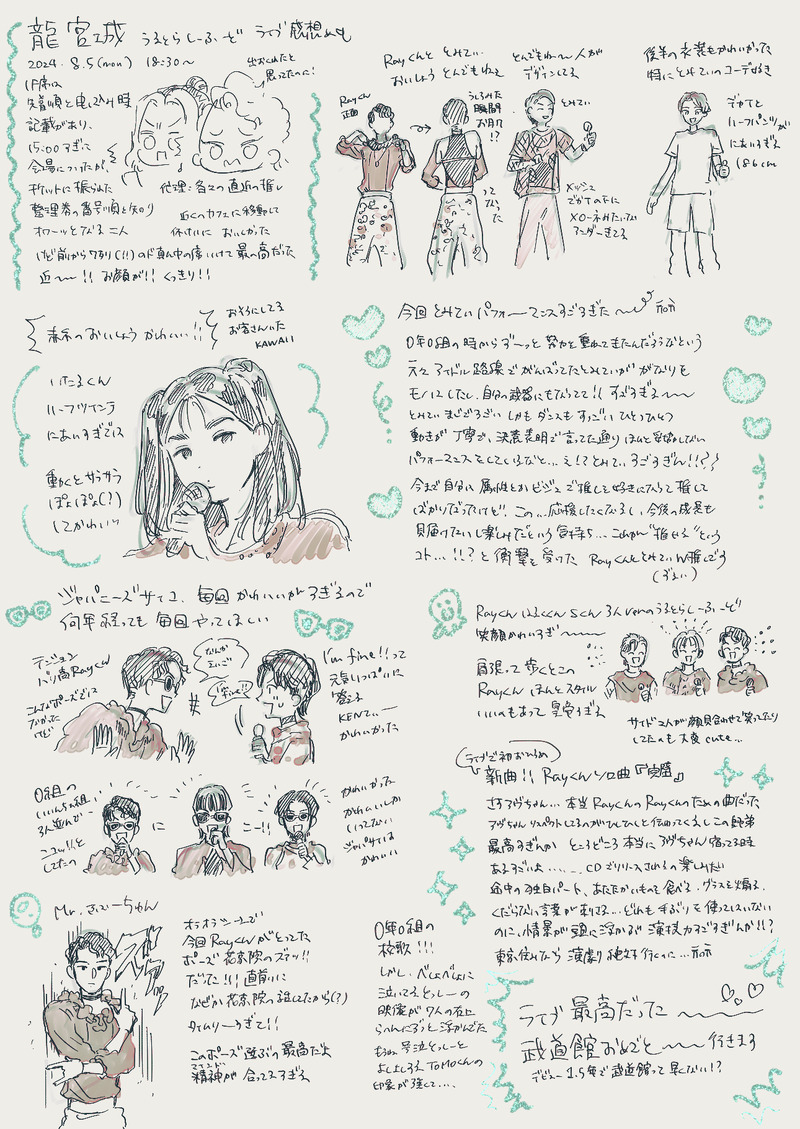 龍宮城 うるとらしーふーど ライブ感想めも
2024.8.5(mon) 18:30〜
出おくれたと
思ってたのに!
1F席は
先着順と申し込み時
記載があり、
15:00すぎて
会場についたが、
チケットに振られた
整理券の番号順と知り
オワーッとなる二人
代理:各々の直近の推し
近くのカフェに移動して
休けいに おいしかった
けど前から7列(!!)のド真ん中の席いけて最高だった
近〜〜!! お顔が!! くっきり!!
Rayくんと とみてぃ
おいしょう とんでもねえ
Rayくん
正面
うしろみた
瞬間
お肌!?
ってなった
とんでもね〜〜人が
デザインしてる
とみてぃ
メッシュ
でかすの下に
メローネみたいな
アンダーきてる
後半の衣装もかわいかった
特にとみてぃのコーデ好き
デカTと
ハーフパンツが
にあいすぎる
186cm
赤糸のおいしょう かわいい!!
おそろにしてる
お客さんいた
KAWAII
いたるくん
ハーフツインテ
にあいすぎてた
動くとサラサラ
ぽよぽよ(?)
してかわいい
今回とみてぃパフォーマンスすごすぎた〜〜
0年0組の時からず〜っと努力を重ねてきたんだろうなという
元々アイドル路線でがんばってたとみてぃががなりも
モノにしたし、自分の武器にもなってて!! すごすぎる〜〜
とみてぃまじですごい しかもダンスもすっごい ひとつひとつ
動きが丁寧で、決意表明で言ってた通りほんと妥協しない
パフォーマンスをしているなと…え!? とみてぃすごすぎん!!??
今まで自分は属性とかビジュで推しを好きになって推して
ばかりだったけど、この…応援したくなるし、今後の成長も
見届けたいし楽しみだという気持ち… これが"推せる"という
コト…!!? と衝撃を受けた Rayくんととみてぃ W推しです
ジャパニーズサイコ、毎回かわいいがすぎるので
何年経っても毎回やってほしい
テンション
バリ高Rayくん
こんなポーズでは
なかった
けど
なんか
I'm fine!!って
元気いっぱいに
答える
KENT〜
かわいかった
0組の
いいんちょ組
3人並んで
に
こーっ!!
ニコッ!!と
してたの
かわいかった
かわいいしか
いってない
ジャパサイは
かわいい
Rayくん はるくん Sくん 3人verのうるとらしーふーど
笑顔かわいすぎ〜〜
肩張って歩くとこの
Rayくんほんとスタイル
いいのもあって 皇帝すぎる
サイド2人が顔見合わせて笑ってたり
してたのも大変cute…
ライブで初おひろめ
新曲!! Rayくんソロ曲『完璧』
さすアヴちゃん…本当RayくんのRayくんのための曲だった
アヴちゃんリスペクトしてるのがひしひしと伝わってくるし この師弟
最高すぎんか ところどころ本当にアヴちゃん宿ってる時
あるすごいよ…… CDでリリースされるの楽しみだ
途中の独白パート、あたたかいものを食べる、グラスを煽る、
くだらない言葉が刺さる…どれも手ぶりを使ってはいない
のに、情景が頭に浮かぶ 演技力すごすぎんか!!?
東京住んでたら演劇 絶対行くに…
Mr.きぶーちゃん
オラオラシーンで
今回Rayくんがとってた
ポーズ 花京院のズアッ!!
だった!!! 直前に
なぜか花京院の話してたから(?)
タイムリーすぎて!!
このポーズ選ぶの最高だよ
マインド
精神が合ってるすぎる
0年0組の
校歌!!!
しかし、べしょべしょに
泣いてるとっしーの
映像が7人の右上
らへんにずっと浮かんでた
もうね 号泣とっしーと
よしよしする TOMOくんの
印象が強くて…
ライブ最高だった〜〜
武道館おめでと〜〜 行きます
デビュー1.5年で武道館って早くない!?